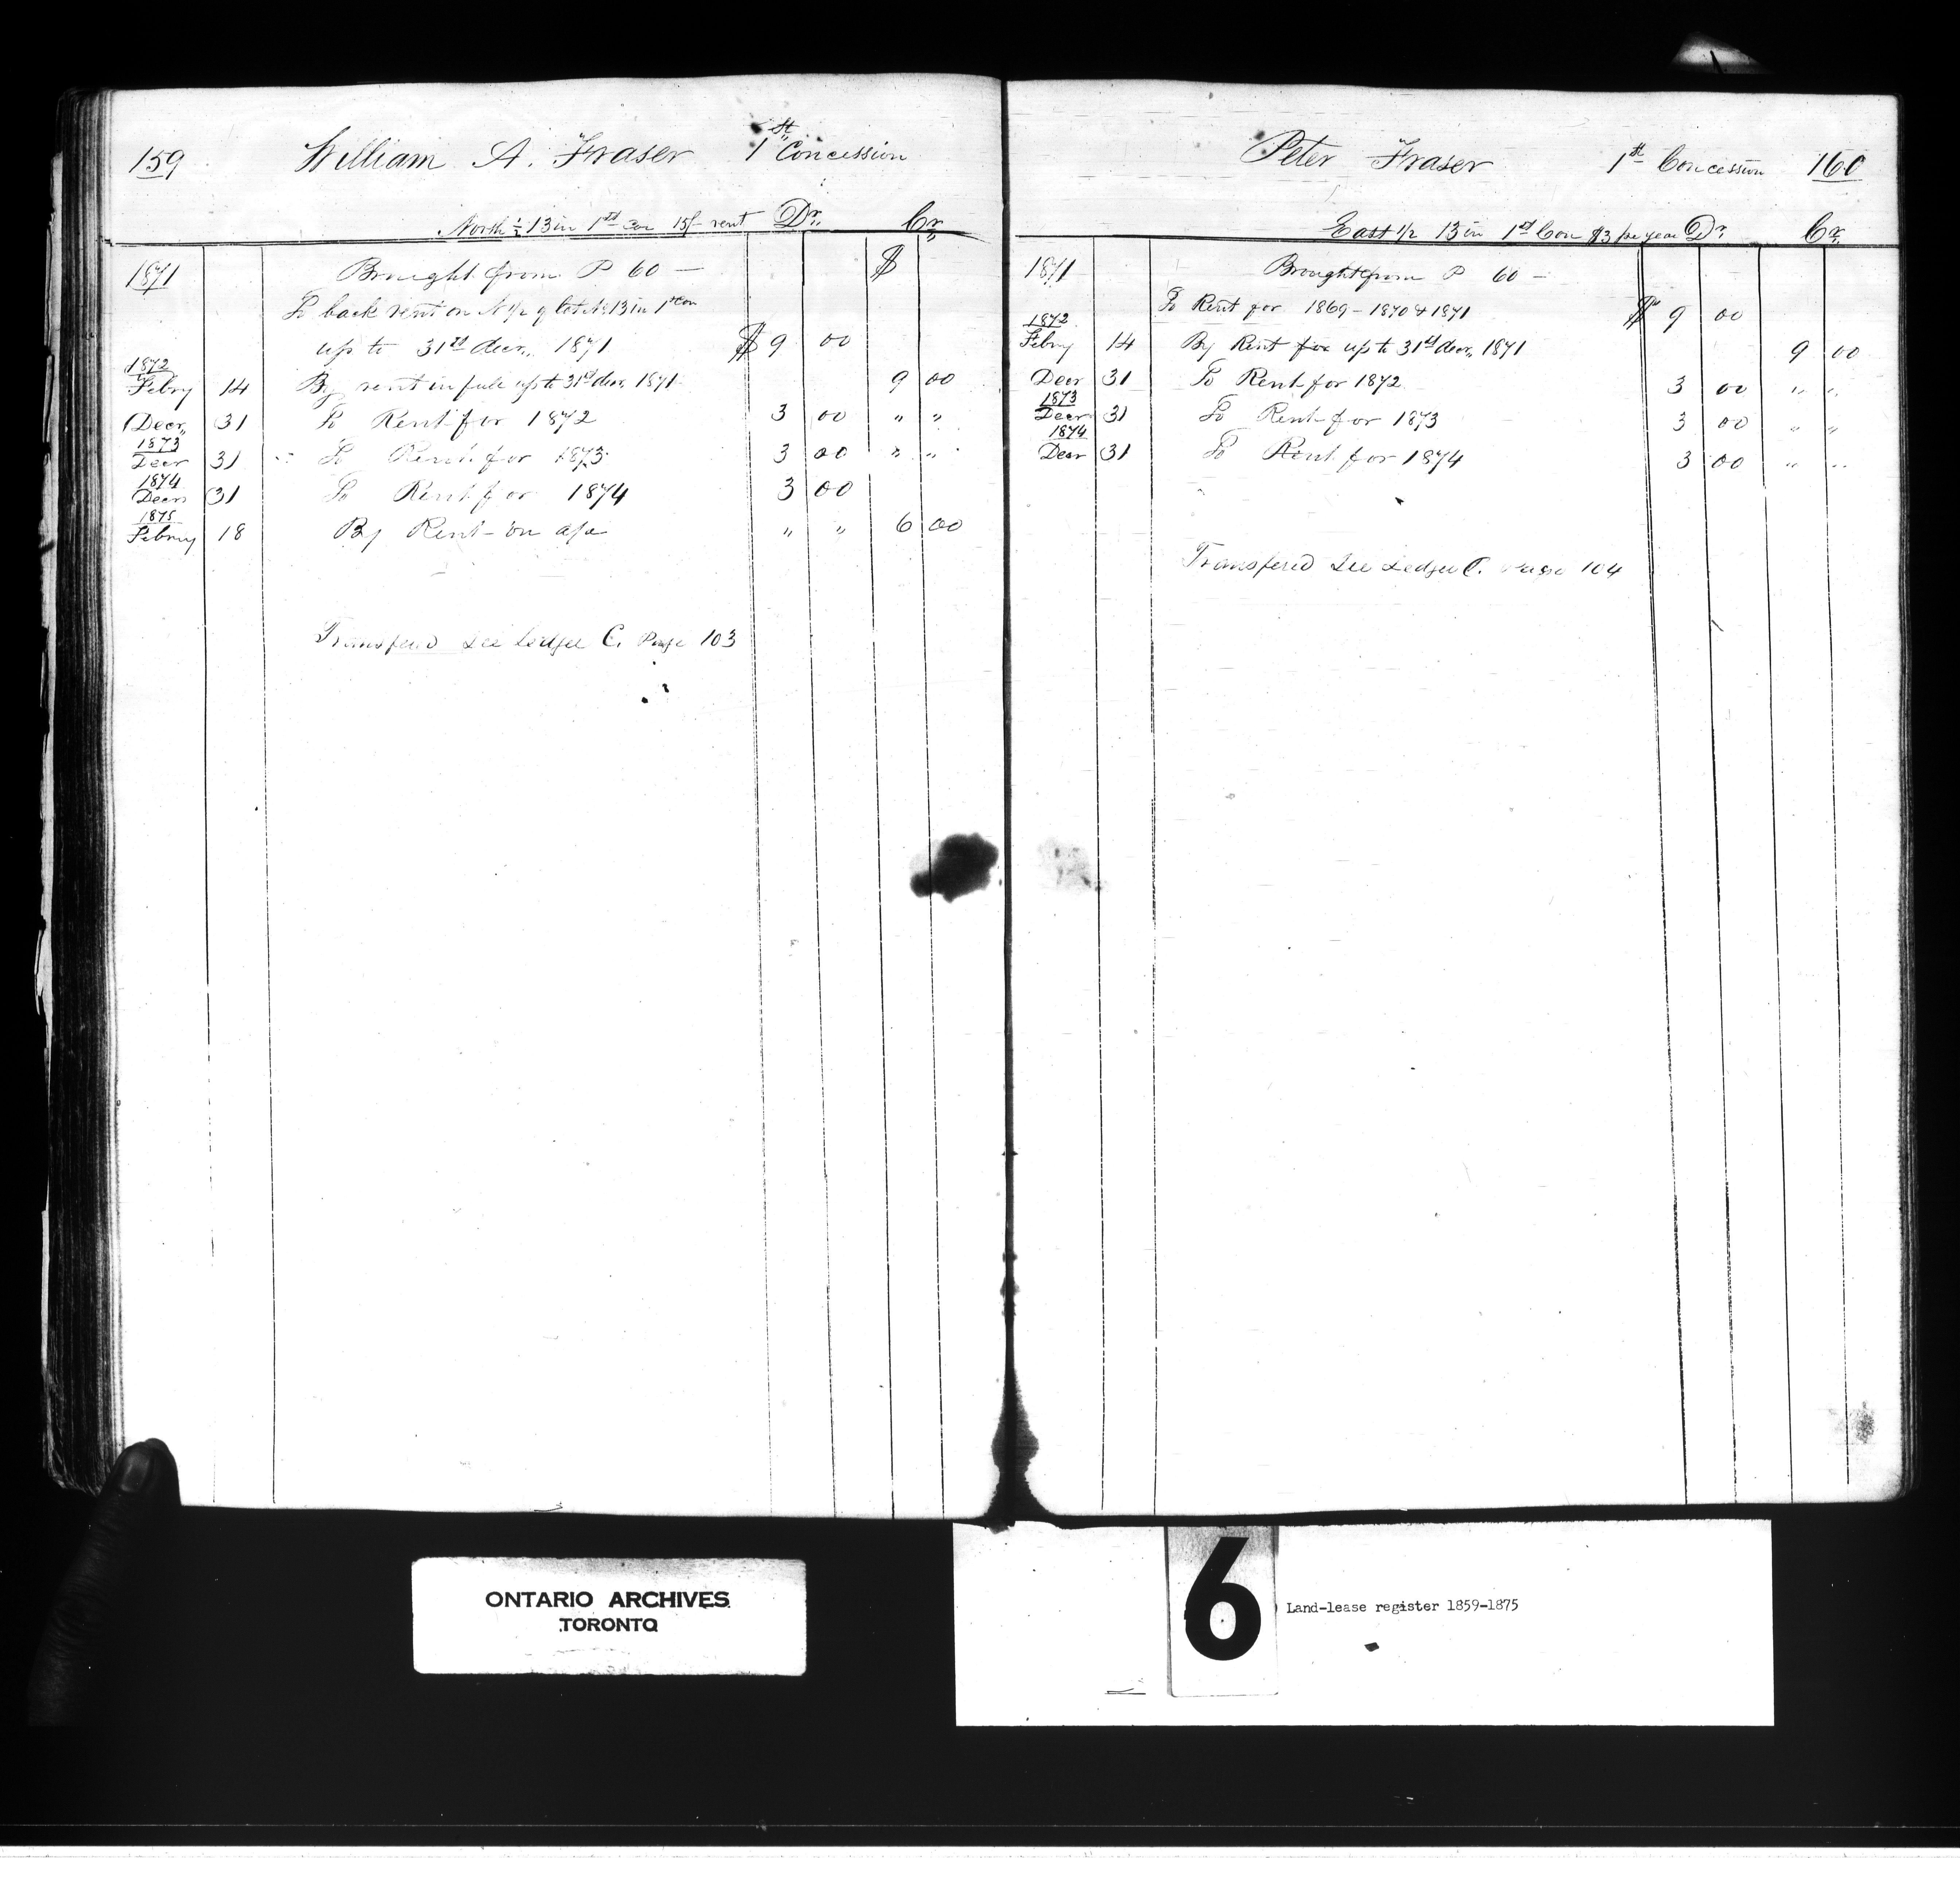 159 William A. Fraser 1st Concession
North ½ 13 in 1st Con 15/- rent Dr. Cr.
1871 Brought from P 60 — $
To back rent on N 1/2 of lot No 13 in 1st con
up to 31st decr., 1871 $ 9 00
1872
Febry 14 By rent in full up to 31st decr, 1871 9 00
Decr, 31 To Rent for 1872 3 00 " "
1873
Decr 31 To Rent for 1873 3 00 " "
1874
Decr 31 To Rent for 1874 3 00
1875
Febry 18 By Rent on a/c " " 6 00
Transferd See Ledger C. Page 103
Peter Fraser 1st Concession 160
East 1/2 13 in 1st Con $3 per year Dr. Cr.
1871 Brought from P 60 —
To Rent for 1869 - 1870 & 1871 $ 9 00
1872
Febry 14 By Rent for up to 31st decr, 1871 9 00
Decr 31 To Rent for 1872 3 00 " "
1873
Decr 31 To Rent for 1873 3 00 " "
1874
Decr 31 To Rent for 1874 3 00 " "
Transfered See Ledger C. Page 104
ONTARIO ARCHIVES
TORONTO
6 Land-lease register 1859-1875